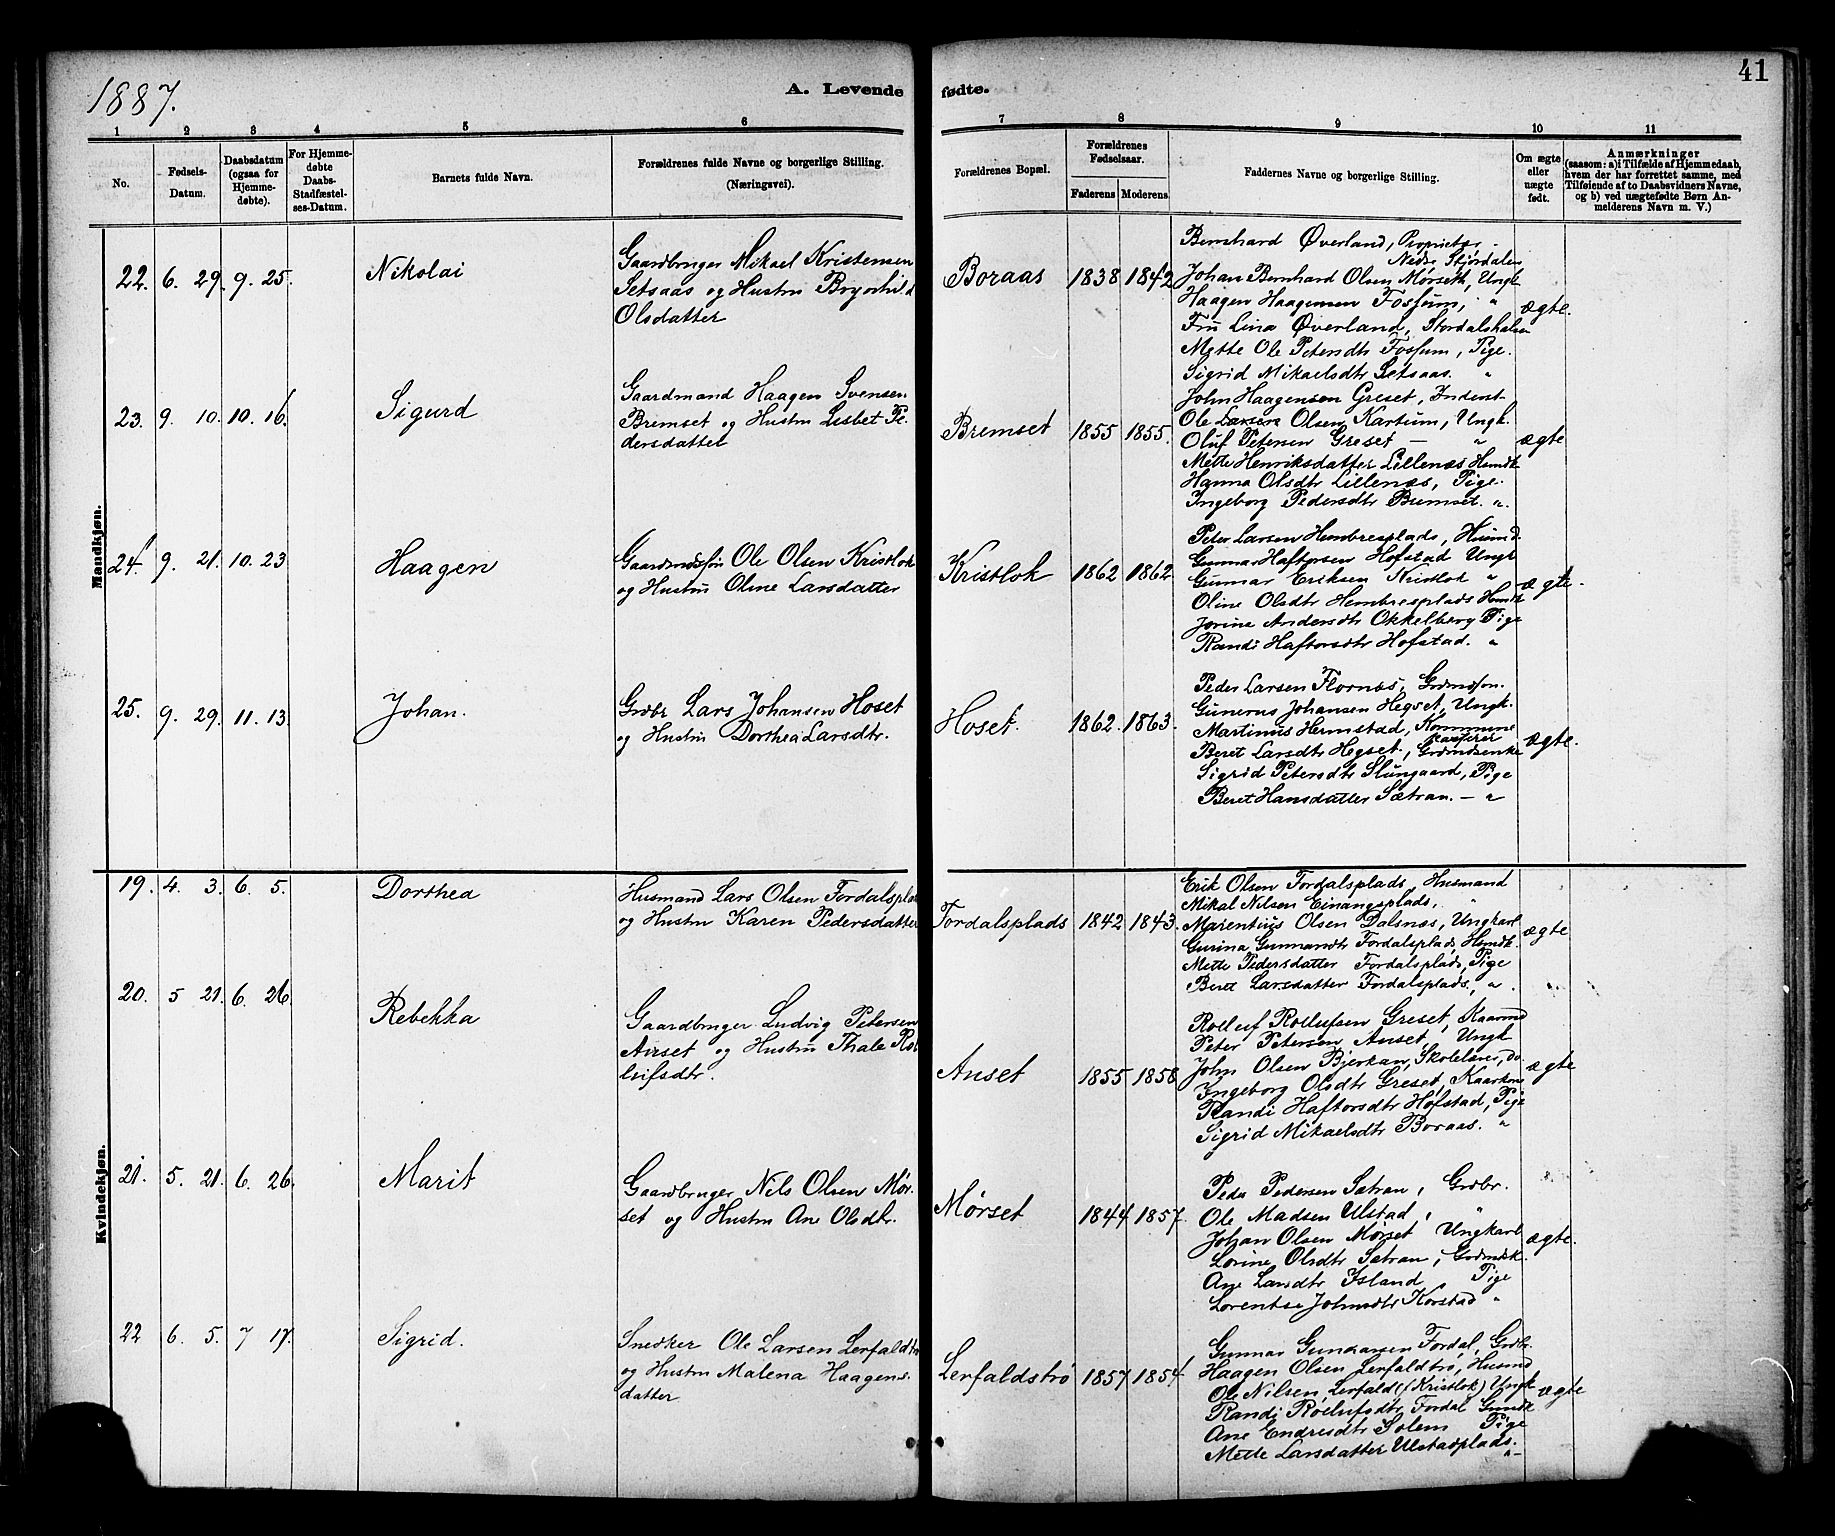 1887.
A. Levende fødte.
41
1 2 3 4 5 6 7 8 9 10 11
No.
Fødsels-
Datum.
Daabsdatum
(ogsaa for
Hjemme-
døbte).
For Hjemme-
døbte
Daabs-
Stadfæstel-
ses-Datum.
Barnets fulde Navn.
Forældrenes fulde Navne og borgerlige Stilling.
(Næringsvei).
Forældrenes Bopæl.
Forældrenes
Fødselsaar.
Faderens Moderens
Faddernes Navne og borgerlige Stilling.
Om ægte
eller
uægte
født.
Anmærkninger
(saasom: a) i Tilfælde af Hjemmedaab,
hvem der har forrettet samme, med
Tilføiende af to Daabsvidners Navne,
og b) ved uægtefødte Børn An-
melderens Navn m. V.)
Mandkjøn.
22. 6. 29. 9. 25. Nikolai
Gaardbruger Mikael Kristensen
Setsaas og Hustru Brynhild
Olsdatter
Boraas 1838 1842
Bernhard Øverland, Proprietær
Nedre Stjørdalen
Johan Bernhard Olsen Mørseth, Ungk
Haagen Haagensen Fossum, "
Fru Lina Øverland, Stordalshalsen
Mette Ole Petersdtr Fossum, Pige.
Sigrid Mikaelsdtr Setsaas. "
ægte.
23. 9. 10. 10. 16. Sigurd
Gaardmand Haagen Svensen
Bremset og Hustru Lisbet Pe-
dersdatter
Bremset 1855 1855.
John Haagensen Greset, Inderst
Ole Larsen Olsen Kartum, Ungk.
Oluf Petersen Greset — "
Mette Henriksdatter Lillenæs Husmdk
Hanna Olsdtr Lillenæs, Pige.
Ingeborg Pedersdtr Bremset. "
ægte
24. 9. 21. 10. 23 Haagen
Gaardmdssøn Ole Olsen Kristlok
og Hustru Oline Larsdatter
Kristlok 1862 1862.
Peter Larsen Hembresplads, Husmd.
Gunnar Haftorsen Hofstad Ungk
Gunnar Eriksen Kristlok "
Oline Olsdtr Hembresplads Husmdk
Jorine Andersdtr Okkelberg Pige
Randi Haftorsdtr Hofstad. "
ægte.
25. 9. 29. 11. 13. Johan.
Grdbr Lars Johansen Hoset
og Hustru Dorthea Larsdtr.
Hoset. 1862. 1863.
Peder Larsen Flornæs, Grdmdsøn.
Gunerus Johansen Hegset, Ungk.
Martinus Hermstad, Kommune
kasserer
Beret Larsdtr Hegset, Grdmdsenke
Sigrid Petersdtr Slungaard, Pige
Beret Hansdatter Sætran. — "
ægte.
Kvindekjøn.
19. 4. 3. 6. 5. Dorthea
Husmand Lars Olsen Fordalsplads
og Hustru Karen Pedersdatter
Fordalsplads 1842 1843.
Erik Olsen Fordalsplads, Husmand
Mikal Nilsen Einangsplads, "
Marentius Olsen Dalsnæs, Ungkarl
Gurina Gunnarsdtr Fordalsplads, Husmdk.
Mette Pedersdatter Fordalsplads, Pige
Beret Larsdatter Fordalsplads, "
ægte
20. 5 21. 6. 26. Rebekka
Gaardbruger Ludvig Petersen
Anset og Hustru Thale Rol
leifsdtr.
Anset 1855 1858
Rolleif Rolleifsen Greset, Kaarmd
Peter Petersen Anset, Ungk
John Olsen Bjerkan, Skolelærer, do.
Ingeborg Olsdtr Greset, Kaarkone
Randi Haftorsdtr Hofstad, Pige
Sigrid Mikaelsdtr Boraas. "
ægte
21. 5. 21. 6. 26. Marit
Gaardbruger Nils Olsen Mør-
set og Hustru Ane Olsdtr.
Mørset 1844 1857.
Peder Pedersen Sætran, Grdbr.
Ole Madsen Ulstad, "
Johan Olsen Mørset Ungkarl
Lorine Olsdtr Sætran, Grdmdsk.
Ane Larsdtr Island, Pige
Lorentse Johnsdtr Korstad "
ægte.
22 6. 5. 7 17. Sigrid.
Snedker Ole Larsen Lerfaldtrø
og Hustru Malena Haagens-
datter
Lerfaldstrø 1857 1854
Gunnar Gunnarsen Fordal, Grdbr.
Haagen Olsen Lerfaldtrø, Husmd
Ole Nilsen, Lerfald (Kristlok) Ungk
Randi Rolleifsdtr Fordal Grdmdk
Ane Endresdtr Solem Pige
Mette Larsdatter Ulstadplads. "
ægte